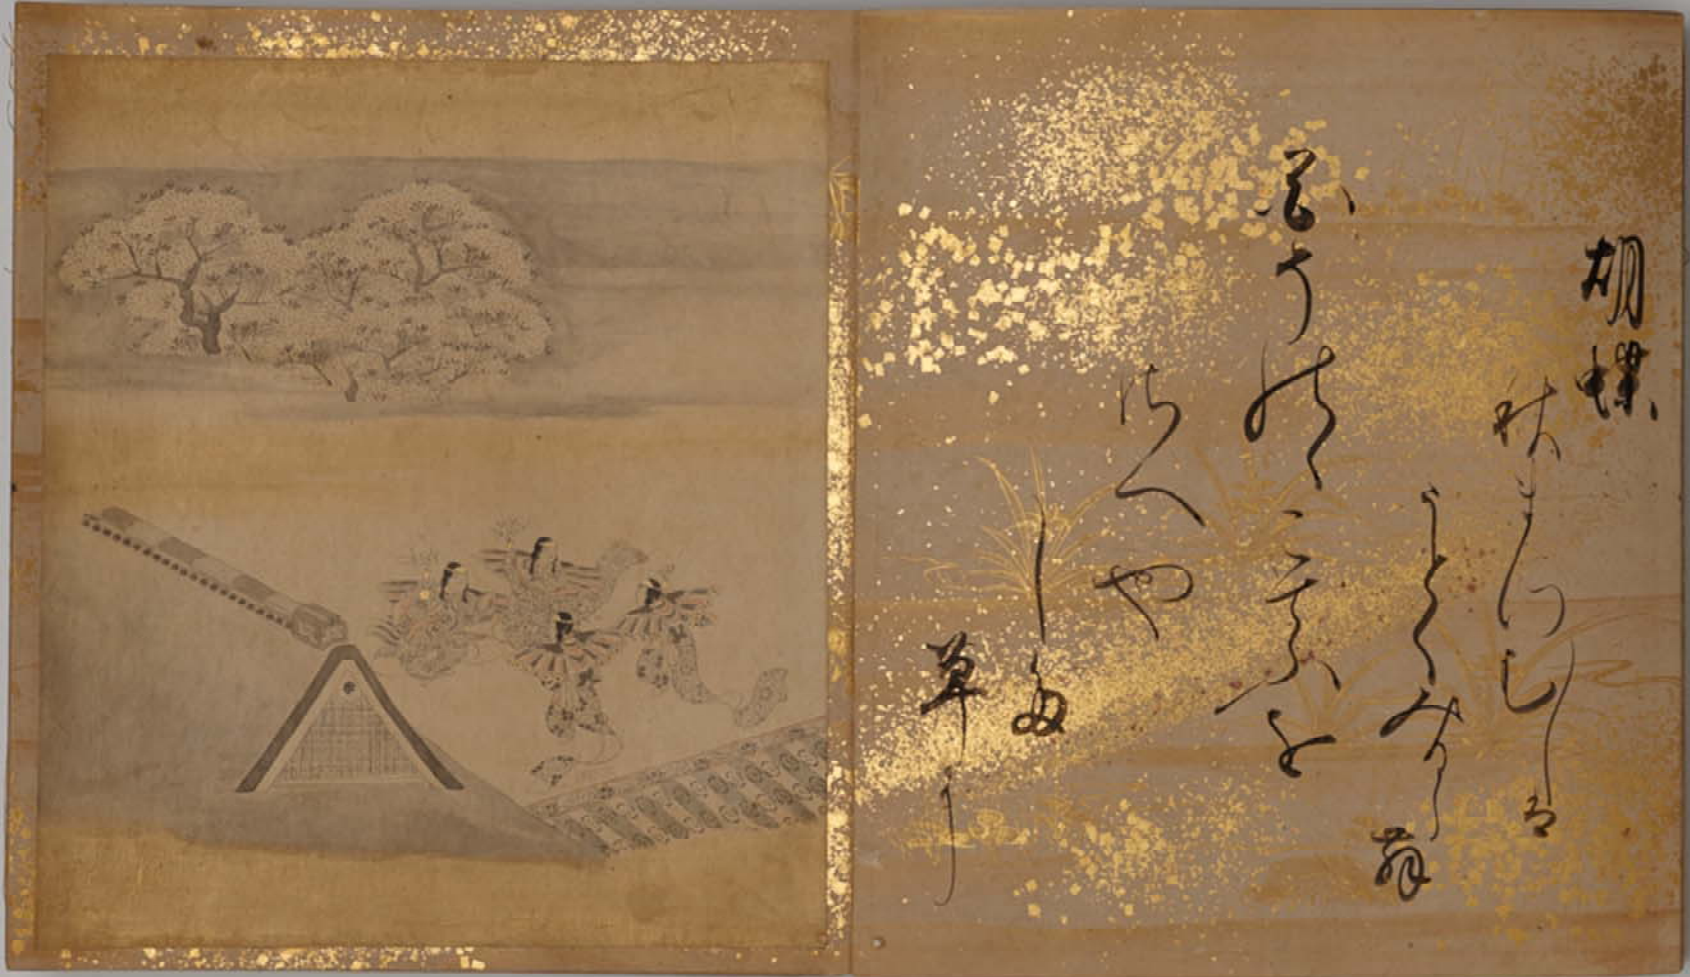 胡蝶
花そのゝこてふを
さへや
した
草に
秋まつむしは
うとくみるら
舞